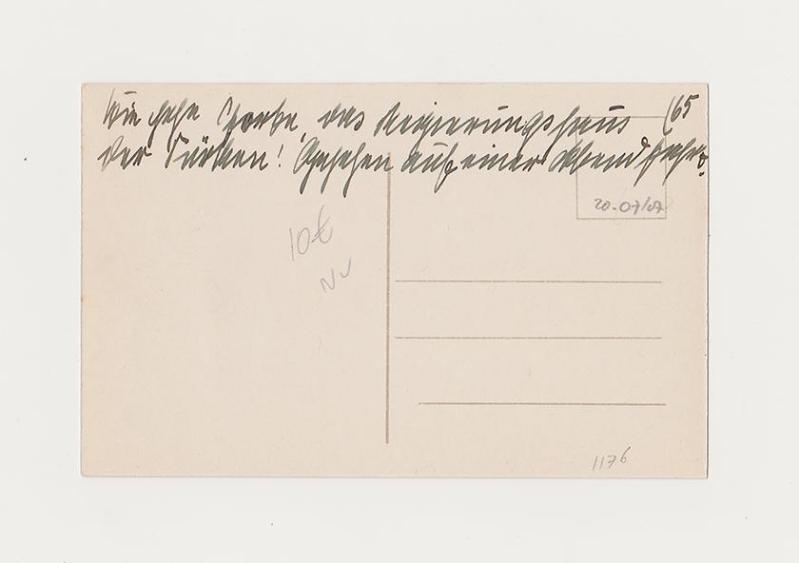 Die hohe Pforte, das Regierungshaus (65
der Türken! Gesehen auf einer Abendfahrt.
20-07/07
10€
NV
1176